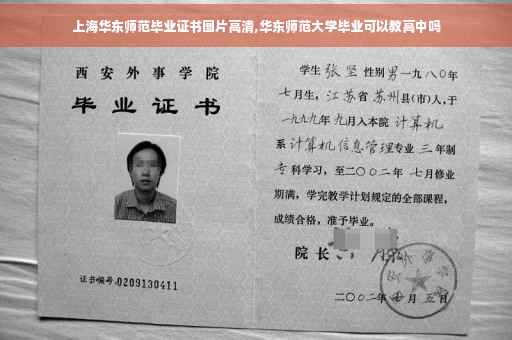 上海华东师范毕业证书图片高清,华东师范大学毕业可以教高中吗
西安外事学院
毕业证书
证书编号:0209130411
学生 张坚 性别男一九八〇年
七月生，江苏省 苏州县(市)人,于
一九九九年九月入本院 计算机
系 计算机信息管理专业 三 年制
专科学习，至二〇〇二年 七月修业
期满，学完教学计划规定的全部课程，
成绩合格，准予毕业。
院长
二〇〇二年 月五日